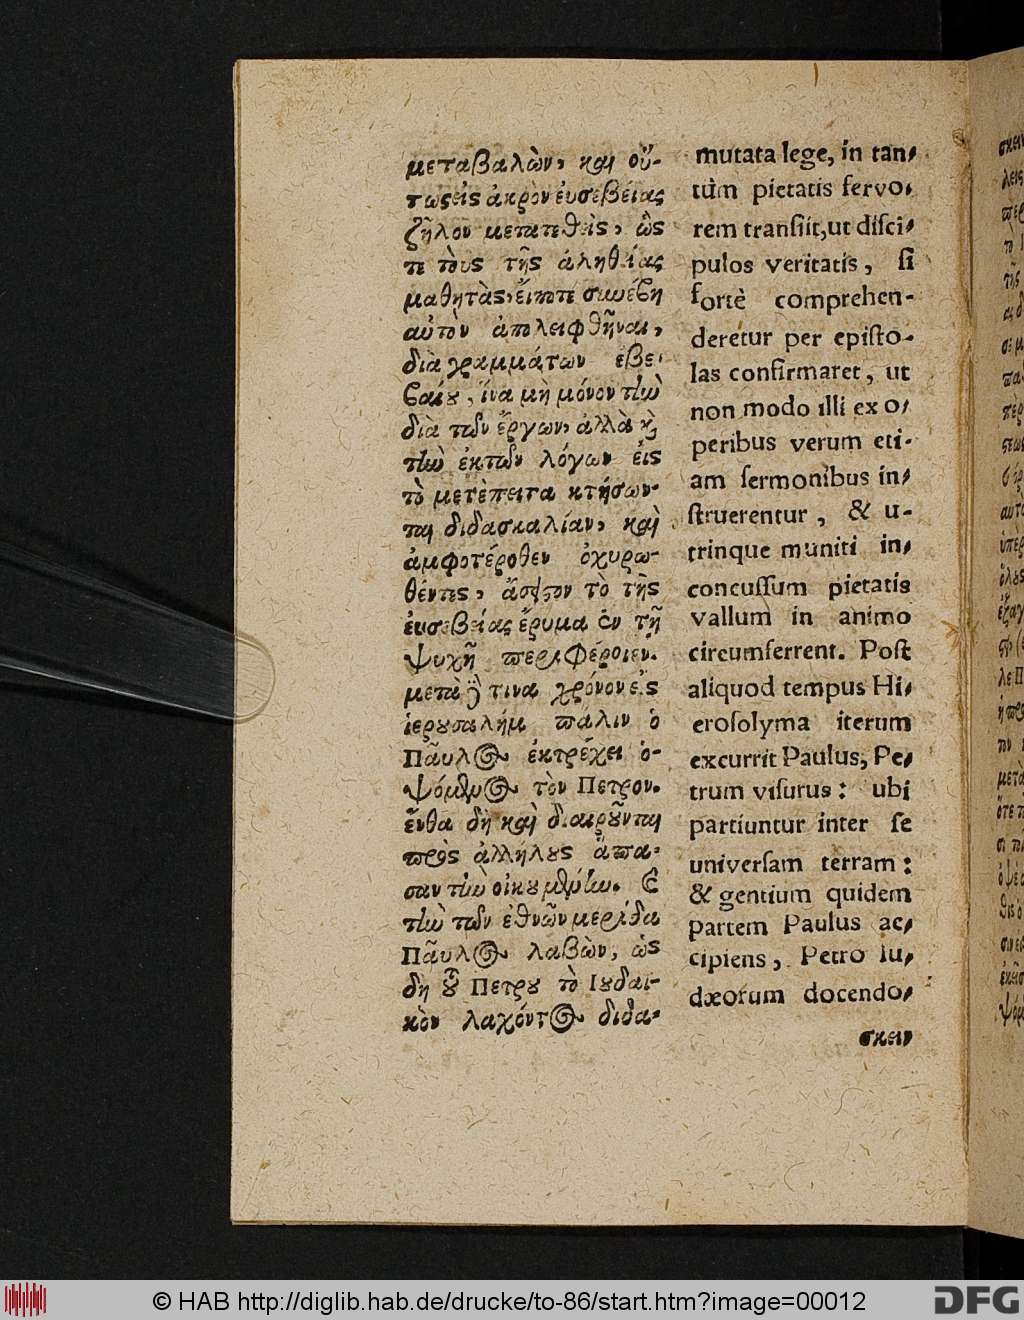 μεταβαλὼν, καὶ οὕ-
τως εἰς ἀκρὸν ἐυσεβείας
ζῆλον μετατεθεὶς, ὥς
τε τοὺς τῆς ἀληθείας
μαθητὰς, εἴποτε συνέβη
αὐτὸν ἀπολειφθῆναι,
διὰ γραμμάτων ἐβε-
βαίου, ἵνα μὴ μόνον τὴν
διὰ τῶν ἔργων, ἀλλὰ καὶ
τὴν ἐκ τῶν λόγων εἰς
τὸ μετέπειτα κτήσων-
ται διδασκαλίαν, καὶ
ἀμφοτέροθεν ὀχυρω-
θέντες, ἄσειστον τὸ τῆς
ἐυσεβείας ἔρυμα ἐν τῇ
ψυχῇ περιφέροιεν.
μετὰ δέ τινα χρόνον εἰς
ἱερουσαλήμ πάλιν ὁ
Παῦλος ἐκτρέχει ὀ-
ψόμενος τὸν Πετρον.
ἔνθα δὴ καὶ διαιροῦνται
πρὸς ἀλλήλους ἅπα-
σαν τὴν οἰκουμένην. καὶ
τὴν τῶν ἐθνῶν μερίδα
Παῦλος λαβὼν, ὡς
δὴ τοῦ Πετρου τὸ Ιουδαι-
κὸν λαχόντος διδα-
mutata lege, in tan-
tùm pietatis fervo-
rem transiit, ut disci-
pulos veritatis, si
fortè comprehen-
deretur per episto-
las confirmaret, ut
non modo illi ex o-
peribus verum eti-
am sermonibus in-
struerentur, & u-
trinque muniti in-
concussum pietatis
vallum in animo
circumferrent. Post
aliquod tempus Hi-
erosolyma iterum
excurrit Paulus, Pe-
trum visurus: ubi
partiuntur inter se
universam terram:
& gentium quidem
partem Paulus ac-
cipiens, Petro Iu-
dæorum docendo-
σκειν
© HAB http://diglib.hab.de/drucke/to-86/start.htm?image=00012
DFG